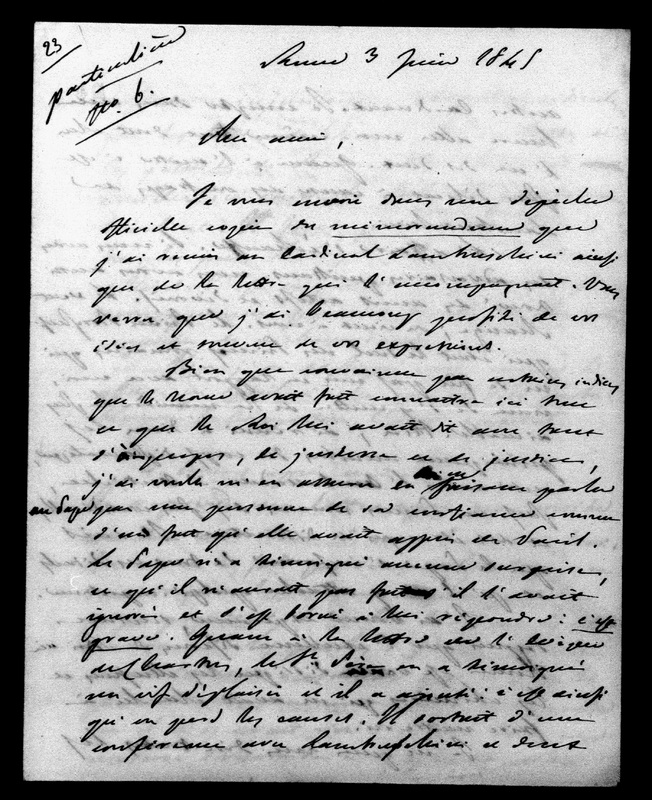 23
particulière
no. 6.
Rome 3 Juin 1845
Mon ami,
Je vous envoie dans une dépêche
officielle copie du memorandum que
j'ai remis au Cardinal Lambruschini ainsi
que de la lettre qui l'accompagnait. Vous
verrez que j'ai beaucoup profité de vos
idées et souvent de vos expressions.
Bien que convaincu par certains indices
que le Nonce avait fait connaître ici tout
ce que le Roi lui avait dit avec tant
d'à propos, de justesse et de justice,
j'ai voulu m'en assurer en faisant parler
au Pape par une personne de sa confiance comme
d'un fait qu'elle avait appris de Paris.
Le Pape n'a témoigné aucune surprise,
ce qu'il n'aurait pas fait s'il l'avait
ignoré et s'est borné à lui répondre: c'est
grave. Quant à la lettre de l'évêque
de Chartres, le St Père en a témoigné
un vif déplaisir et il a ajouté: c'est ainsi
qu'on perd les causes. Il sortait d'une
conférence avec Lambruschini et dont